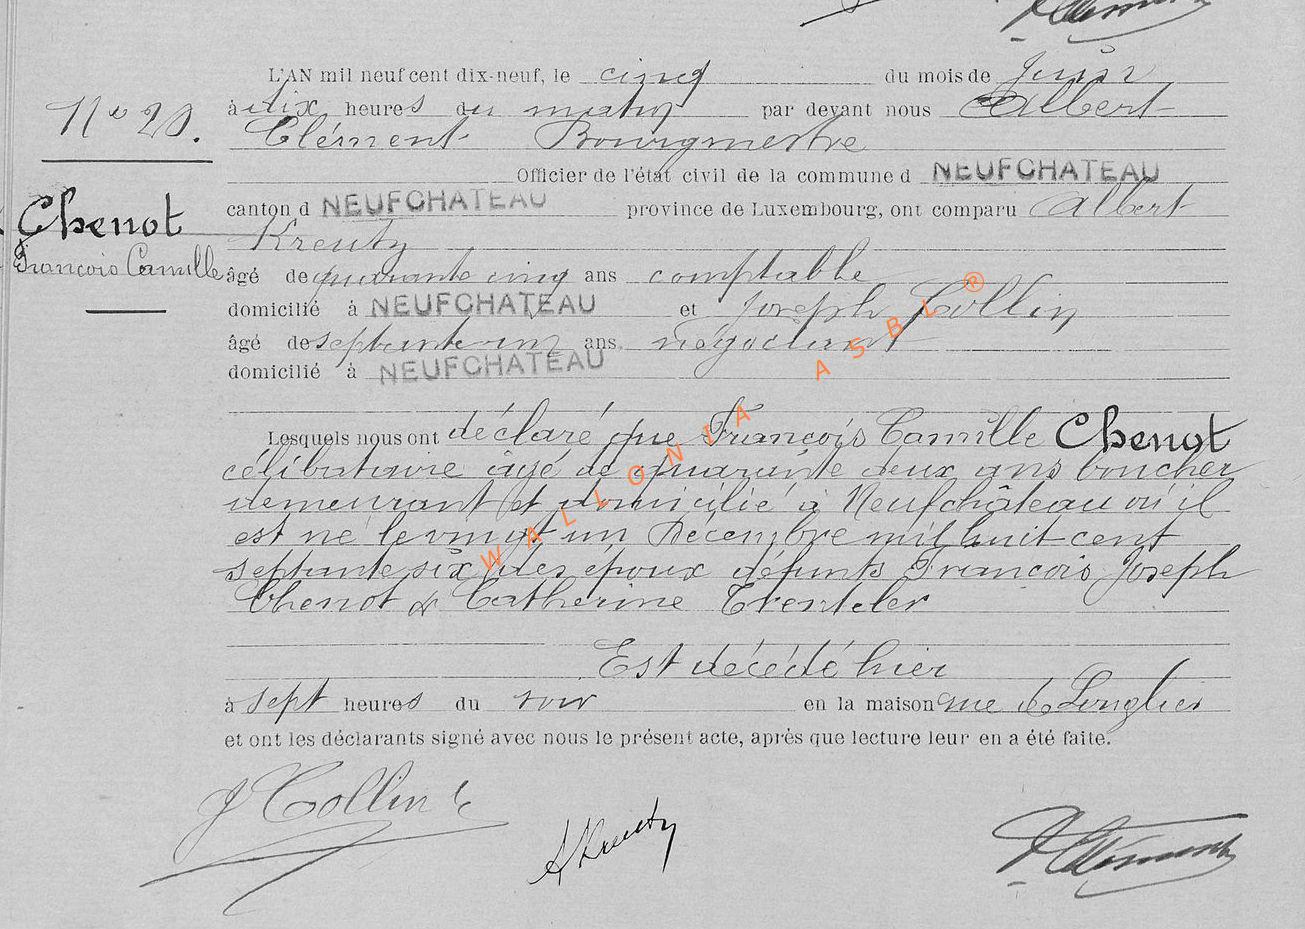 L'AN mil neuf cent dix-neuf, le cinq du mois de Juin
N° 20.
à dix heures du matin par devant nous Albert
Clément Bourgmestre
Officier de l'état civil de la commune d NEUFCHATEAU
Chenot
canton d NEUFCHATEAU province de Luxembourg, ont comparu Albert
Kreutz
François Camille
âgé de quarante cinq ans comptable
domicilié à NEUFCHATEAU et Joseph Collin
âgé de septante un ans négociant
domicilié à NEUFCHATEAU
Lesquels nous ont déclaré que François Camille Chenot
célibataire âgé de quarante deux ans boucher
demeurant et domicilié à Neufchâteau où il
est né le vingt un Décembre mil huit cent
septante six des époux défunts François Joseph
Chenot & Catherine
Est décédé hier
à sept heures du soir en la maison rue de Longlier
et ont les déclarants signé avec nous le présent acte, après que lecture leur en a été faite.
J Collin
AKreutz
AClément
WALLONIA ASBL ®